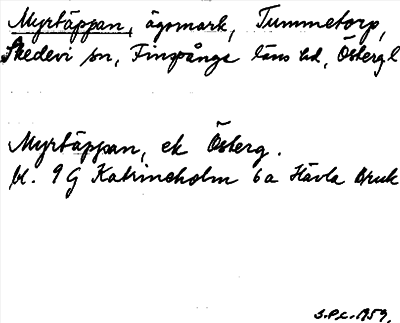 Myrtäppan, ägomark, Tummetorp,
Skedevi sn, Finspånga läns hd, Östergl
Myrtäppan, ek Österg.
bl. 9G Katrineholm 6a Hävla Bruk
S.P.L. 1959.